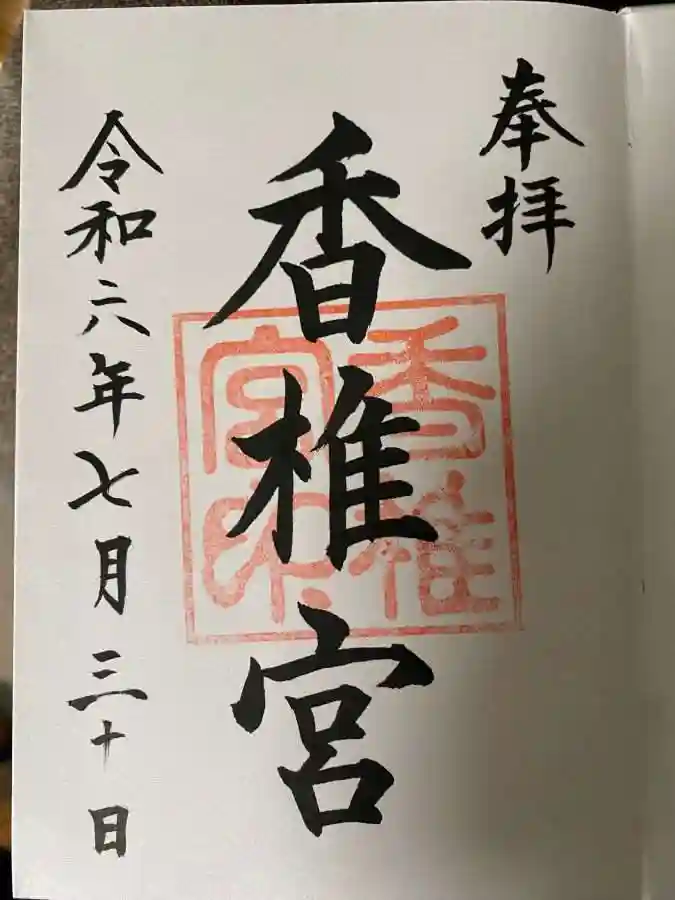 奉拝
香椎宮
香椎
宮印
令和六年七月三十日